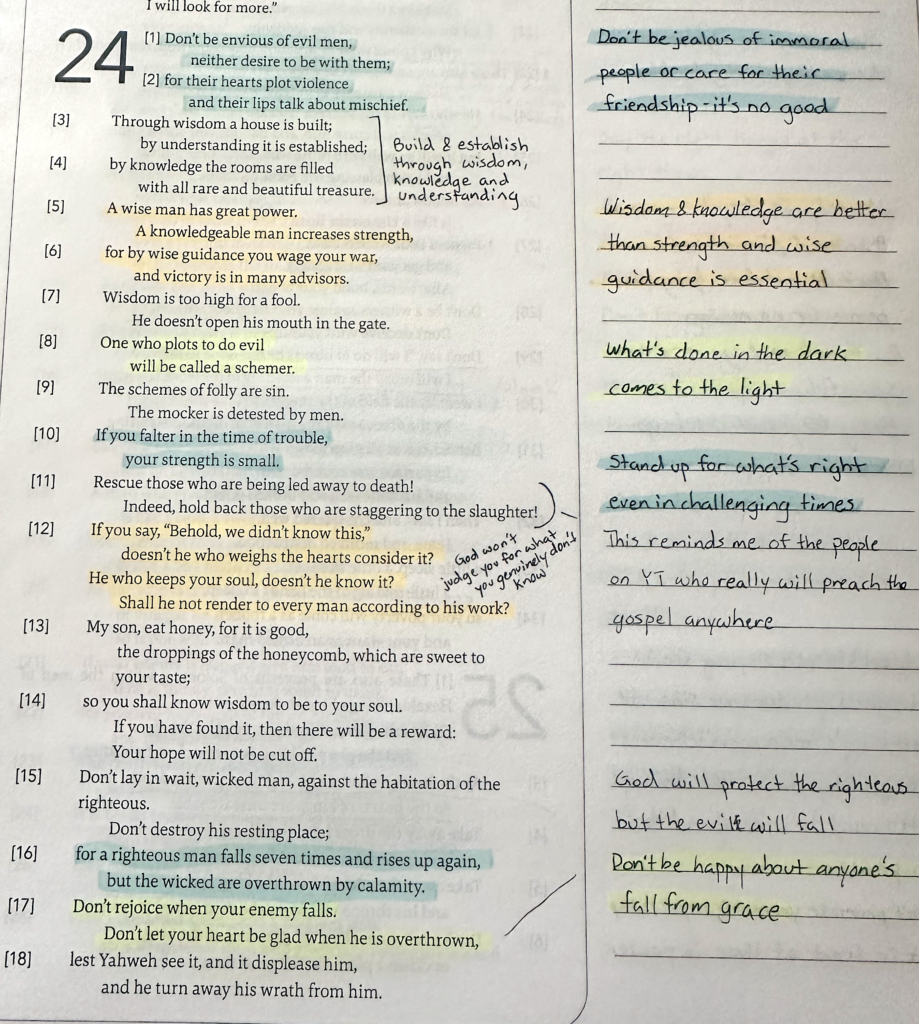 I will look for more."
24
[1] Don't be envious of evil men,
neither desire to be with them;
[2] for their hearts plot violence
and their lips talk about mischief.
[3] Through wisdom a house is built;
by understanding it is established;
[4] by knowledge the rooms are filled
with all rare and beautiful treasure.
Build & establish
through wisdom,
knowledge and
understanding
[5] A wise man has great power.
A knowledgeable man increases strength,
[6] for by wise guidance you wage your war,
and victory is in many advisors.
[7] Wisdom is too high for a fool.
He doesn't open his mouth in the gate.
[8] One who plots to do evil
will be called a schemer.
[9] The schemes of folly are sin.
The mocker is detested by men.
[10] If you falter in the time of trouble,
your strength is small.
[11] Rescue those who are being led away to death!
Indeed, hold back those who are staggering to the slaughter!
[12] If you say, "Behold, we didn't know this,"
doesn't he who weighs the hearts consider it?
He who keeps your soul, doesn't he know it?
Shall he not render to every man according to his work?
God won't
judge you for what
you genuinely don't
know
[13] My son, eat honey, for it is good,
the droppings of the honeycomb, which are sweet to
your taste;
[14] so you shall know wisdom to be to your soul.
If you have found it, then there will be a reward:
Your hope will not be cut off.
[15] Don't lay in wait, wicked man, against the habitation of the
righteous.
Don't destroy his resting place;
[16] for a righteous man falls seven times and rises up again,
but the wicked are overthrown by calamity.
[17] Don't rejoice when your enemy falls.
Don't let your heart be glad when he is overthrown,
[18] lest Yahweh see it, and it displease him,
and he turn away his wrath from him.
Don't be jealous of immoral
people or care for their
friendship - it's no good
Wisdom & knowledge are better
than strength and wise
guidance is essential
What's done in the dark
comes to the light
Stand up for what's right
even in challenging times
This reminds me of the people
on YT who really will preach the
gospel anywhere
God will protect the righteous
but the evil will fall
Don't be happy about anyone's
fall from grace